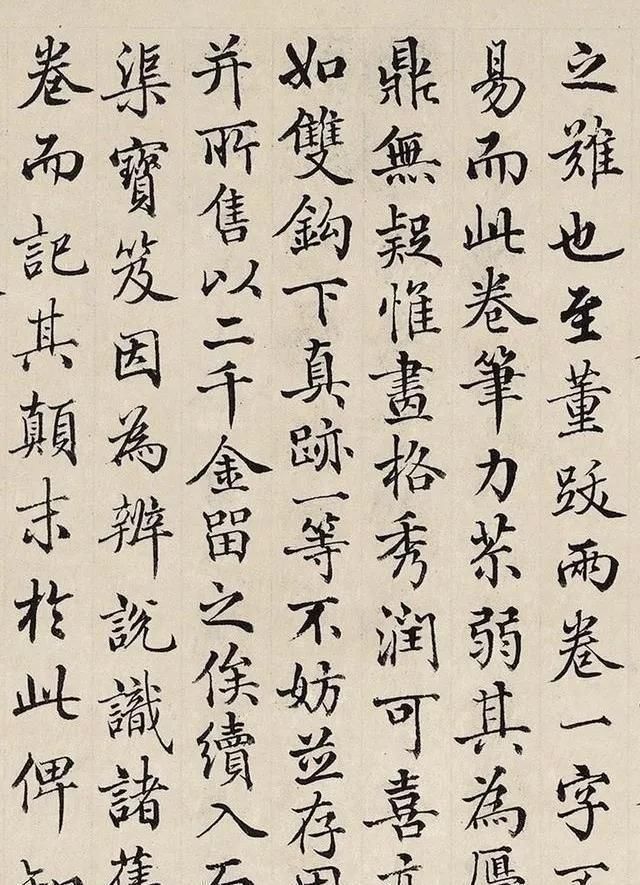 之難也至董跋兩卷一字不
易而此卷筆力苶弱其為贋
鼎無疑惟畫格秀潤可喜亦
如雙鈎下真跡一等不妨並存因
并所售以二千金留之俟續入石
渠寶笈因為辨說識諸舊
卷而記其顛末於此俾知